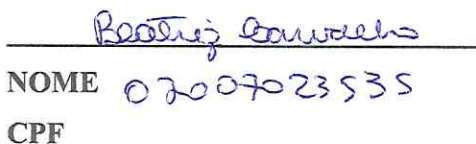 Beatriz Carvalho
NOME 07007023535
CPF